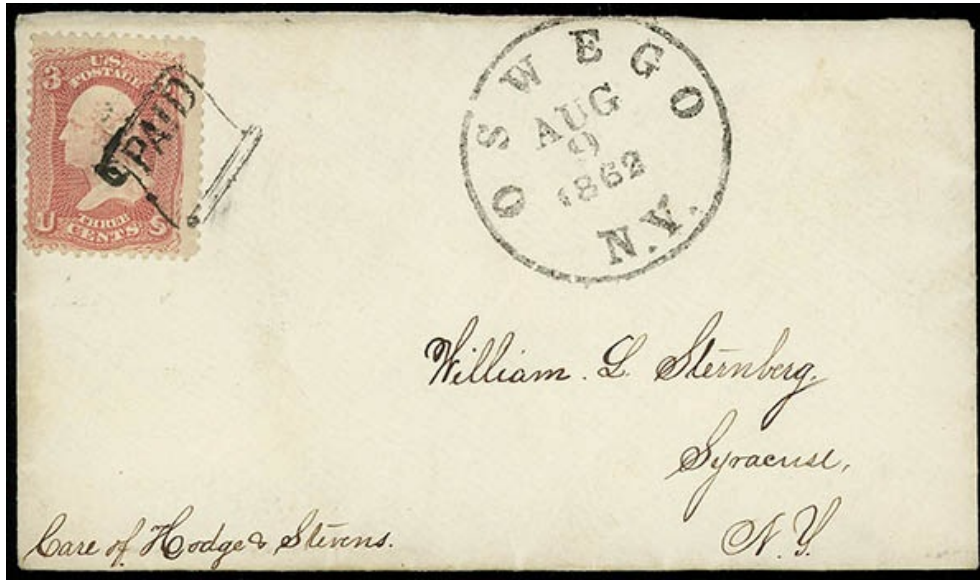 U.S.
POSTAGE
3
PAID
U S
THREE
CENTS
OSWEGO
AUG
9
1862
N.Y.
William. L. Sternberg.
Syracuse,
N.Y.
Care of Hodge & Stevens.